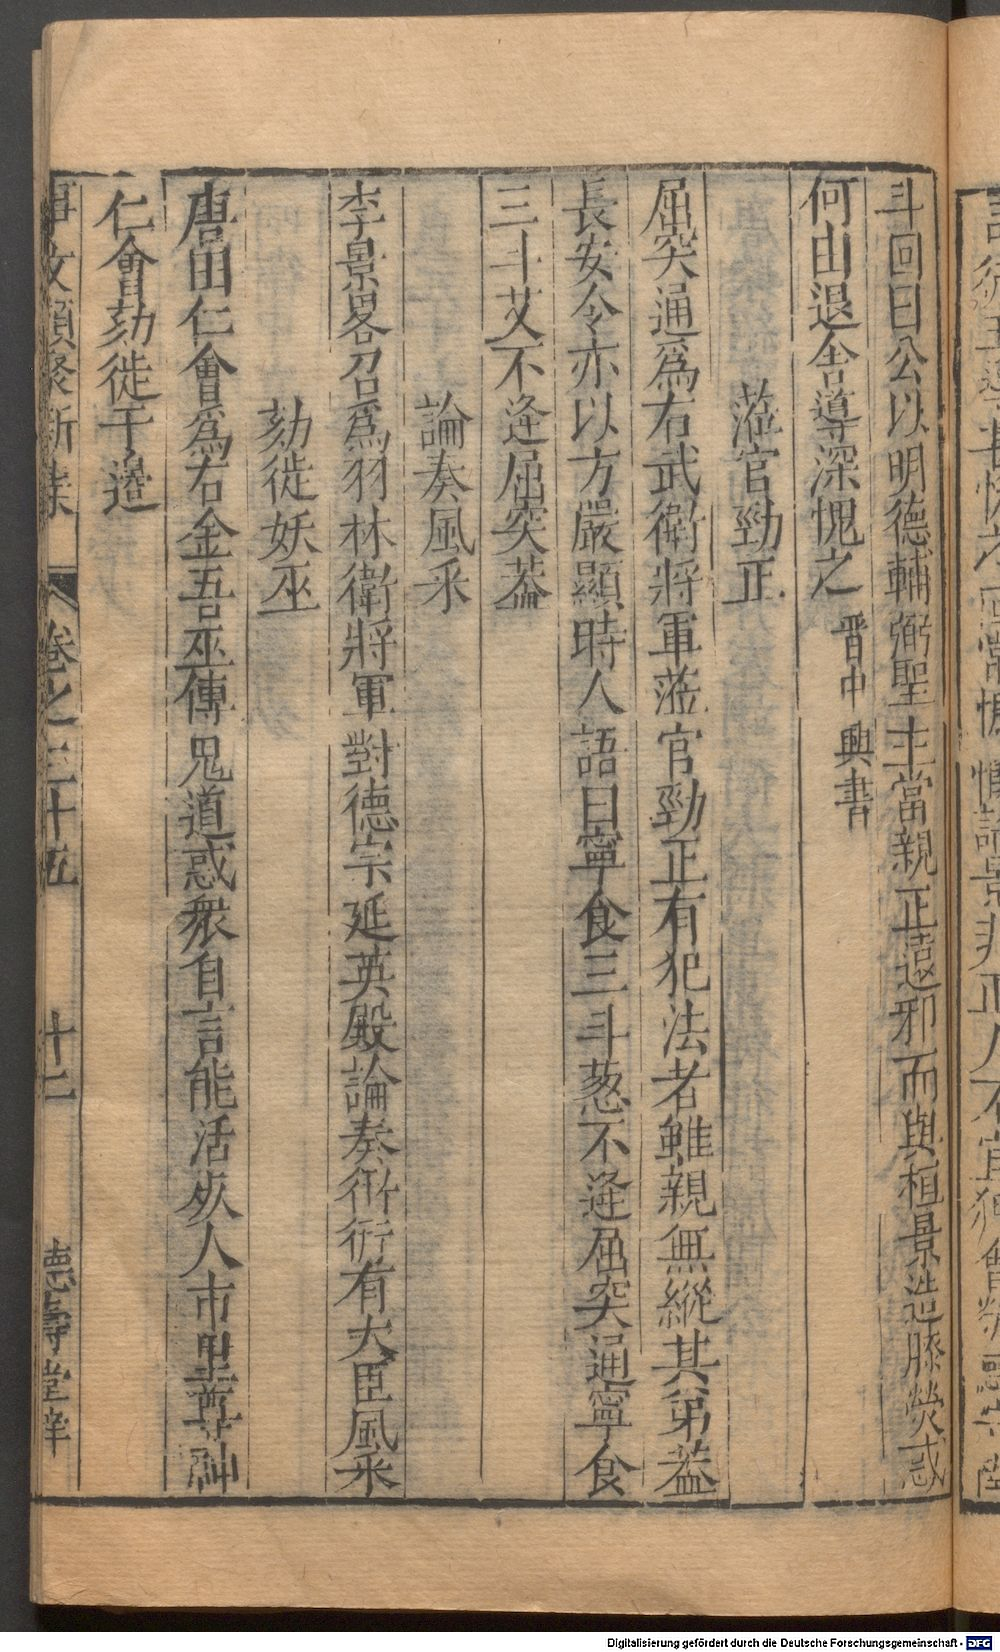 斗回曰公以明德輔弼聖主當親正遠邪而與桓景造膝熒惑
何由退舍導深愧之 晉中興書
蒞官勁正
屈突通為右武衛將軍蒞官勁正有犯法者雖親無縱其弟蓋
長安令亦以方嚴顯時人語曰寧食三斗葱不逢屈突通寧食
三斗艾不逢屈突蓋
論奏風采
李景畧召為羽林衛將軍對德宗延英殿論奏衎衎有大臣風采
劾徙妖巫
唐田仁會為右金吾巫傳鬼道惑衆自言能活死人市里尊神
仁會劾徙于邊
事文類聚新集 卷之三十五 十七 德壽堂梓
Digitalisierung gefördert durch die Deutsche Forschungsgemeinschaft - DFG